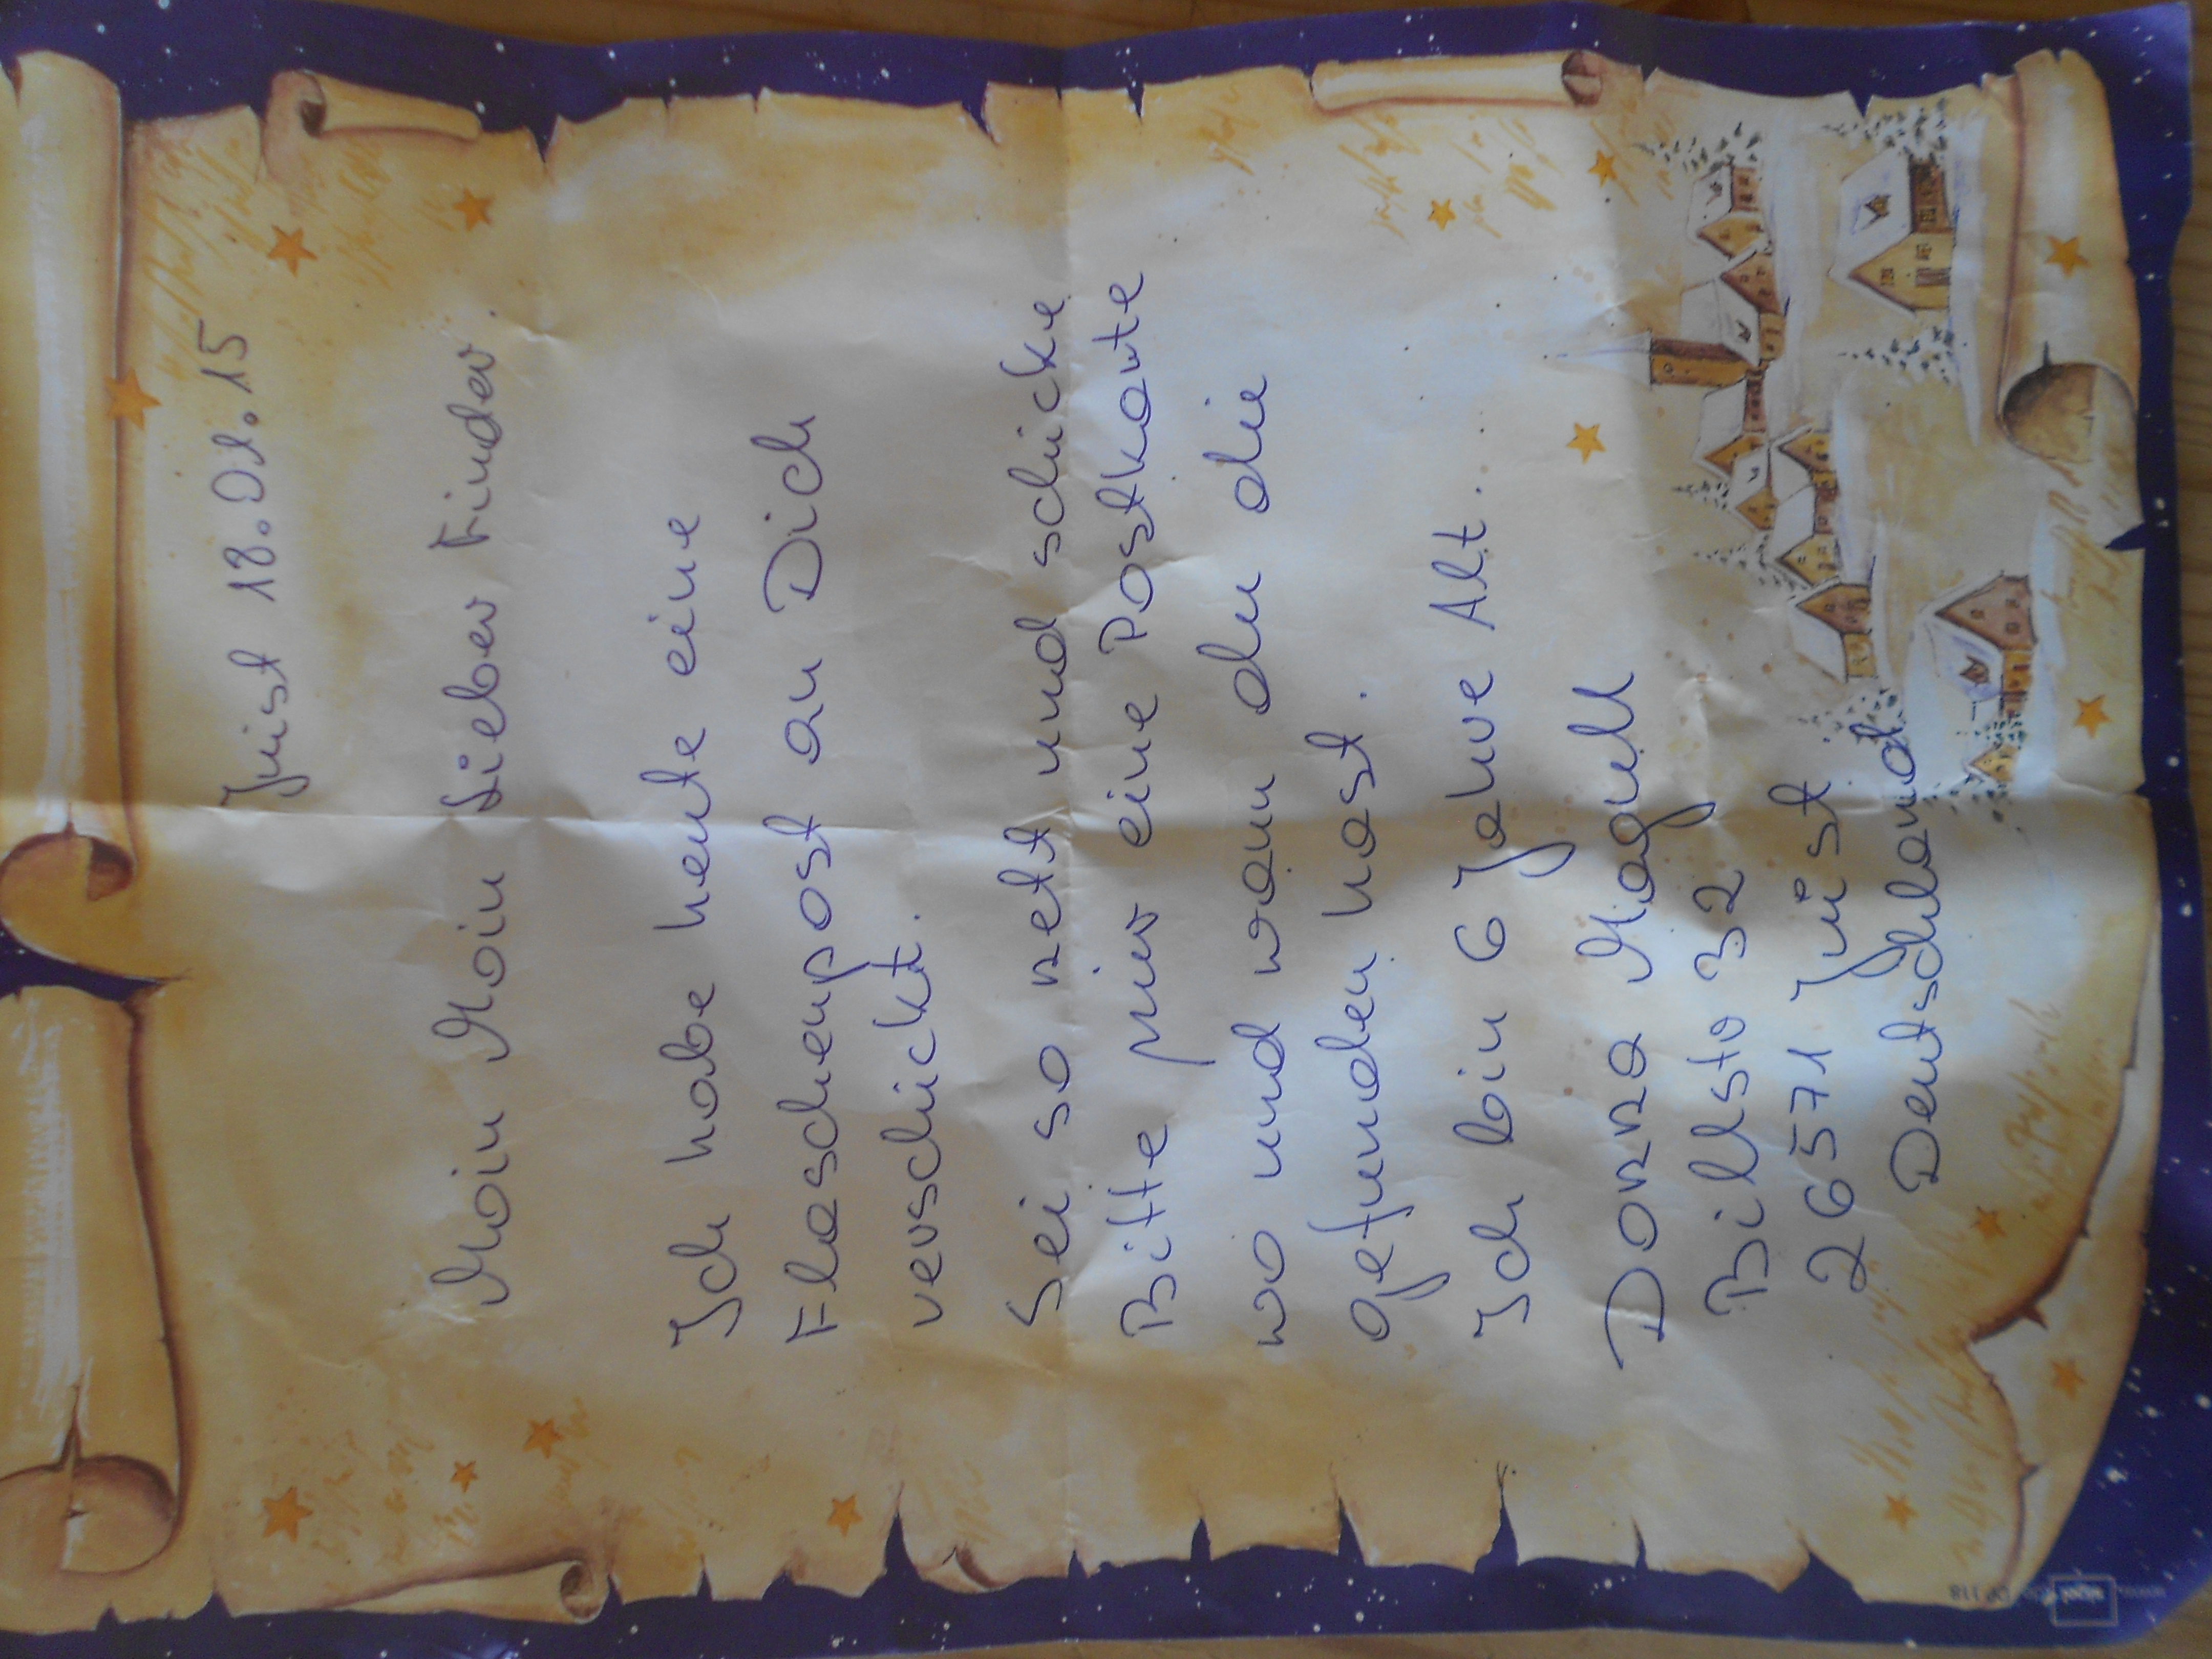 Juist 18.01.15
Moin Moin Lieber Finder
Ich habe heute eine
Flaschenpost an Dich
verschickt.
Sei so nett und schicke
Bitte mir eine Postkarte
wo und wann du die
gefunden hast.
Ich bin 6 Jahre Alt...
Donna Magull
Billstr 32
26571 Juist
Deutschland